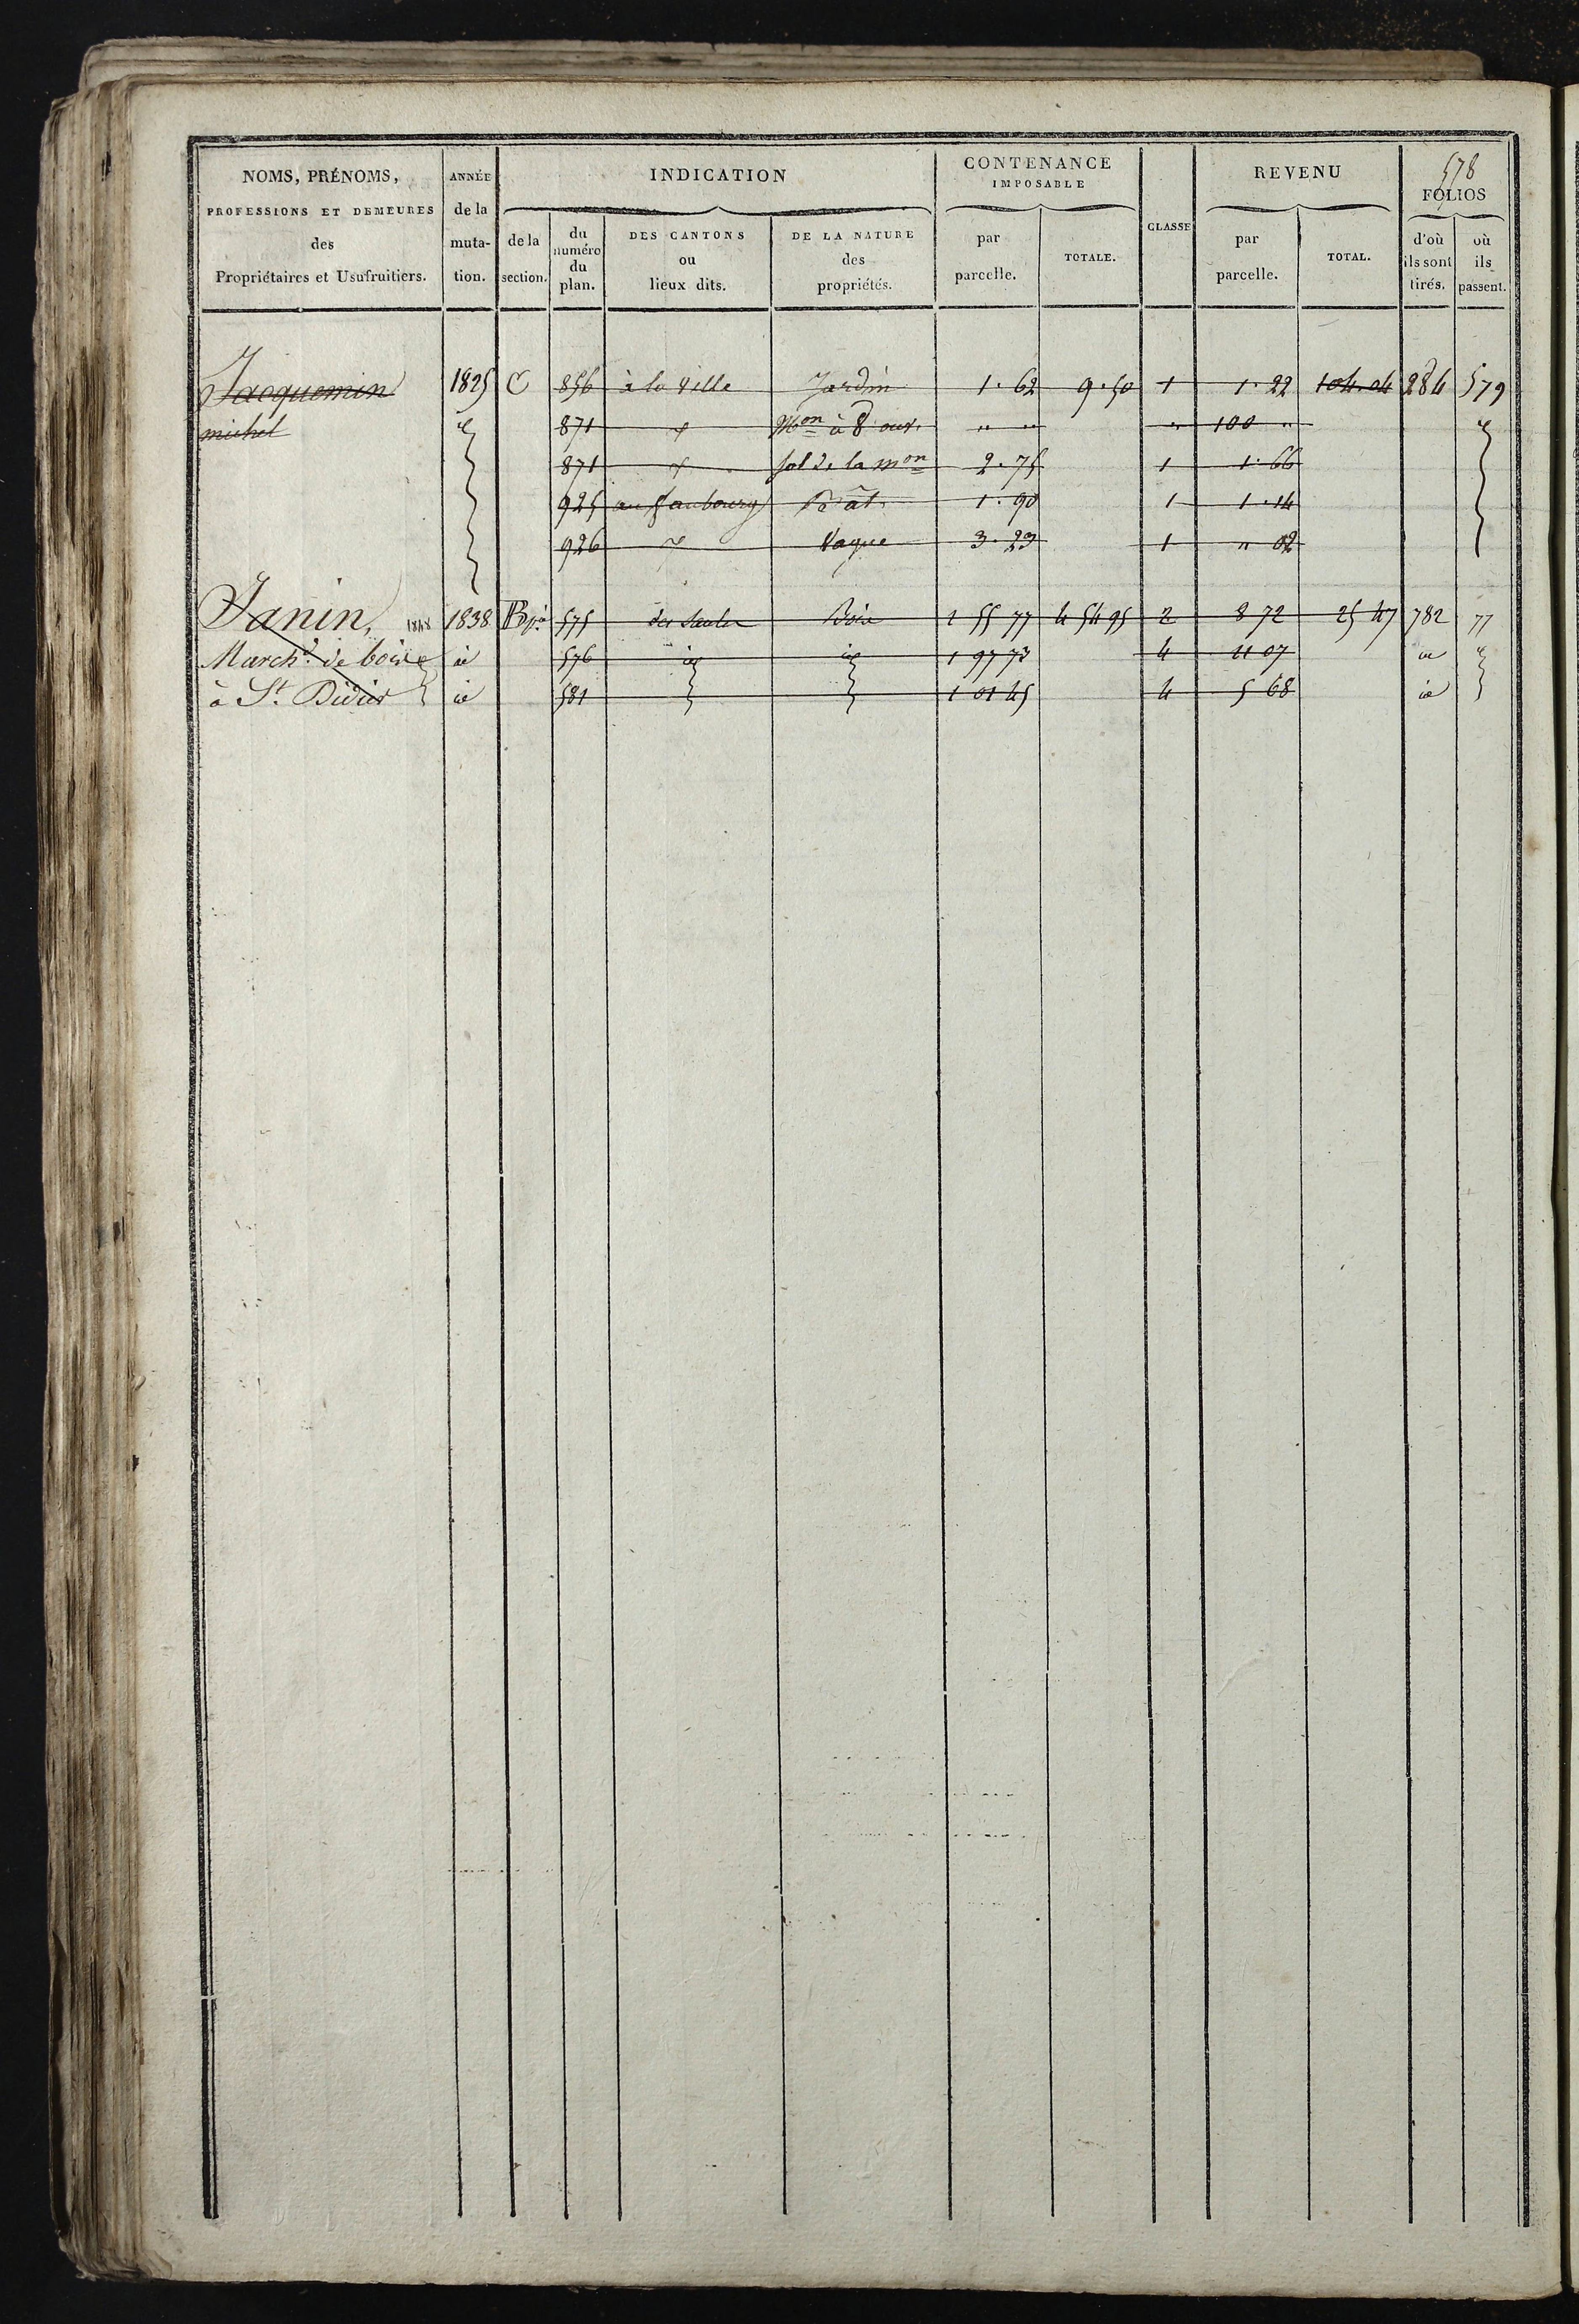 578
NOMS, PRÉNOMS, ANNÉE INDICATION CONTENANCE IMPOSABLE CLASSE REVENU FOLIOS
PROFESSIONS ET DEMEURES des Propriétaires et Usufruitiers. de la mutation. de la section. du numéro du plan. DES CANTONS ou lieux dits. DE LA NATURE des propriétés. par parcelle. TOTALE. par parcelle. TOTAL. d'où ils sont tirés. où ils passent.
Jacquemin 1825 C 856 à la ville Jardin 1.62 9.50 1 1.22 104.04 284 579
michel 871 Mon à 8 ouv. " " " 100 "
871 sol de la mon 2.75 1 1.66
925 au faubourg Bât. 1.90 1 1.14
926 Vague 3.23 1 " 02
Janin, 1848 1838 575 Bois 1 55 77 4 54 95 2 8 72 25 47 782 77
Marchd de bois id 576 id id 1 97 73 4 11 07 id
à St. Didier id 581 1 01 45 4 5 68 id